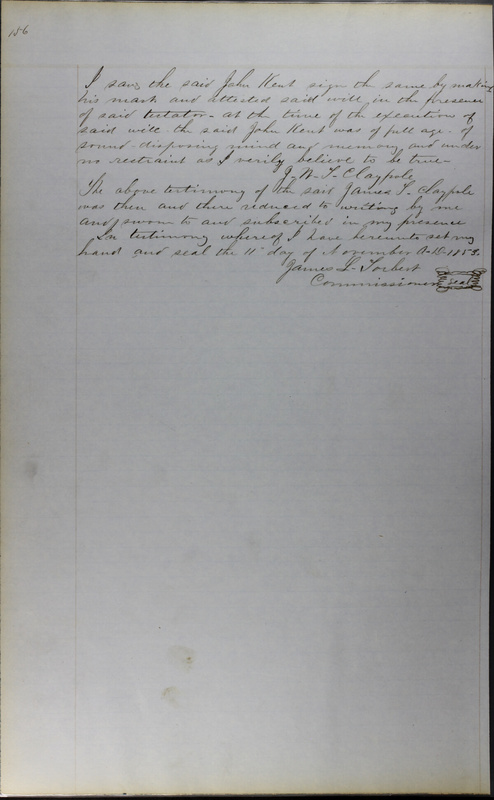 156
I saw the said John Kent sign the same by making
his mark and attested said will in the presence
of said testator - at the time of the execution of
said will the said John Kent was of full age - of
sound - disposing mind and memory and under
no restraint as I verily believe to be true -
J. W. T. Claypole
The above testimony of the said James T. Claypole
was then and there reduced to writing by me
and sworn to and subscribed in my presence
In testimony whereof I have hereunto set my
hand and seal the 11th day of November A.D. 1853.
James L. Torbert
Commissioner seal